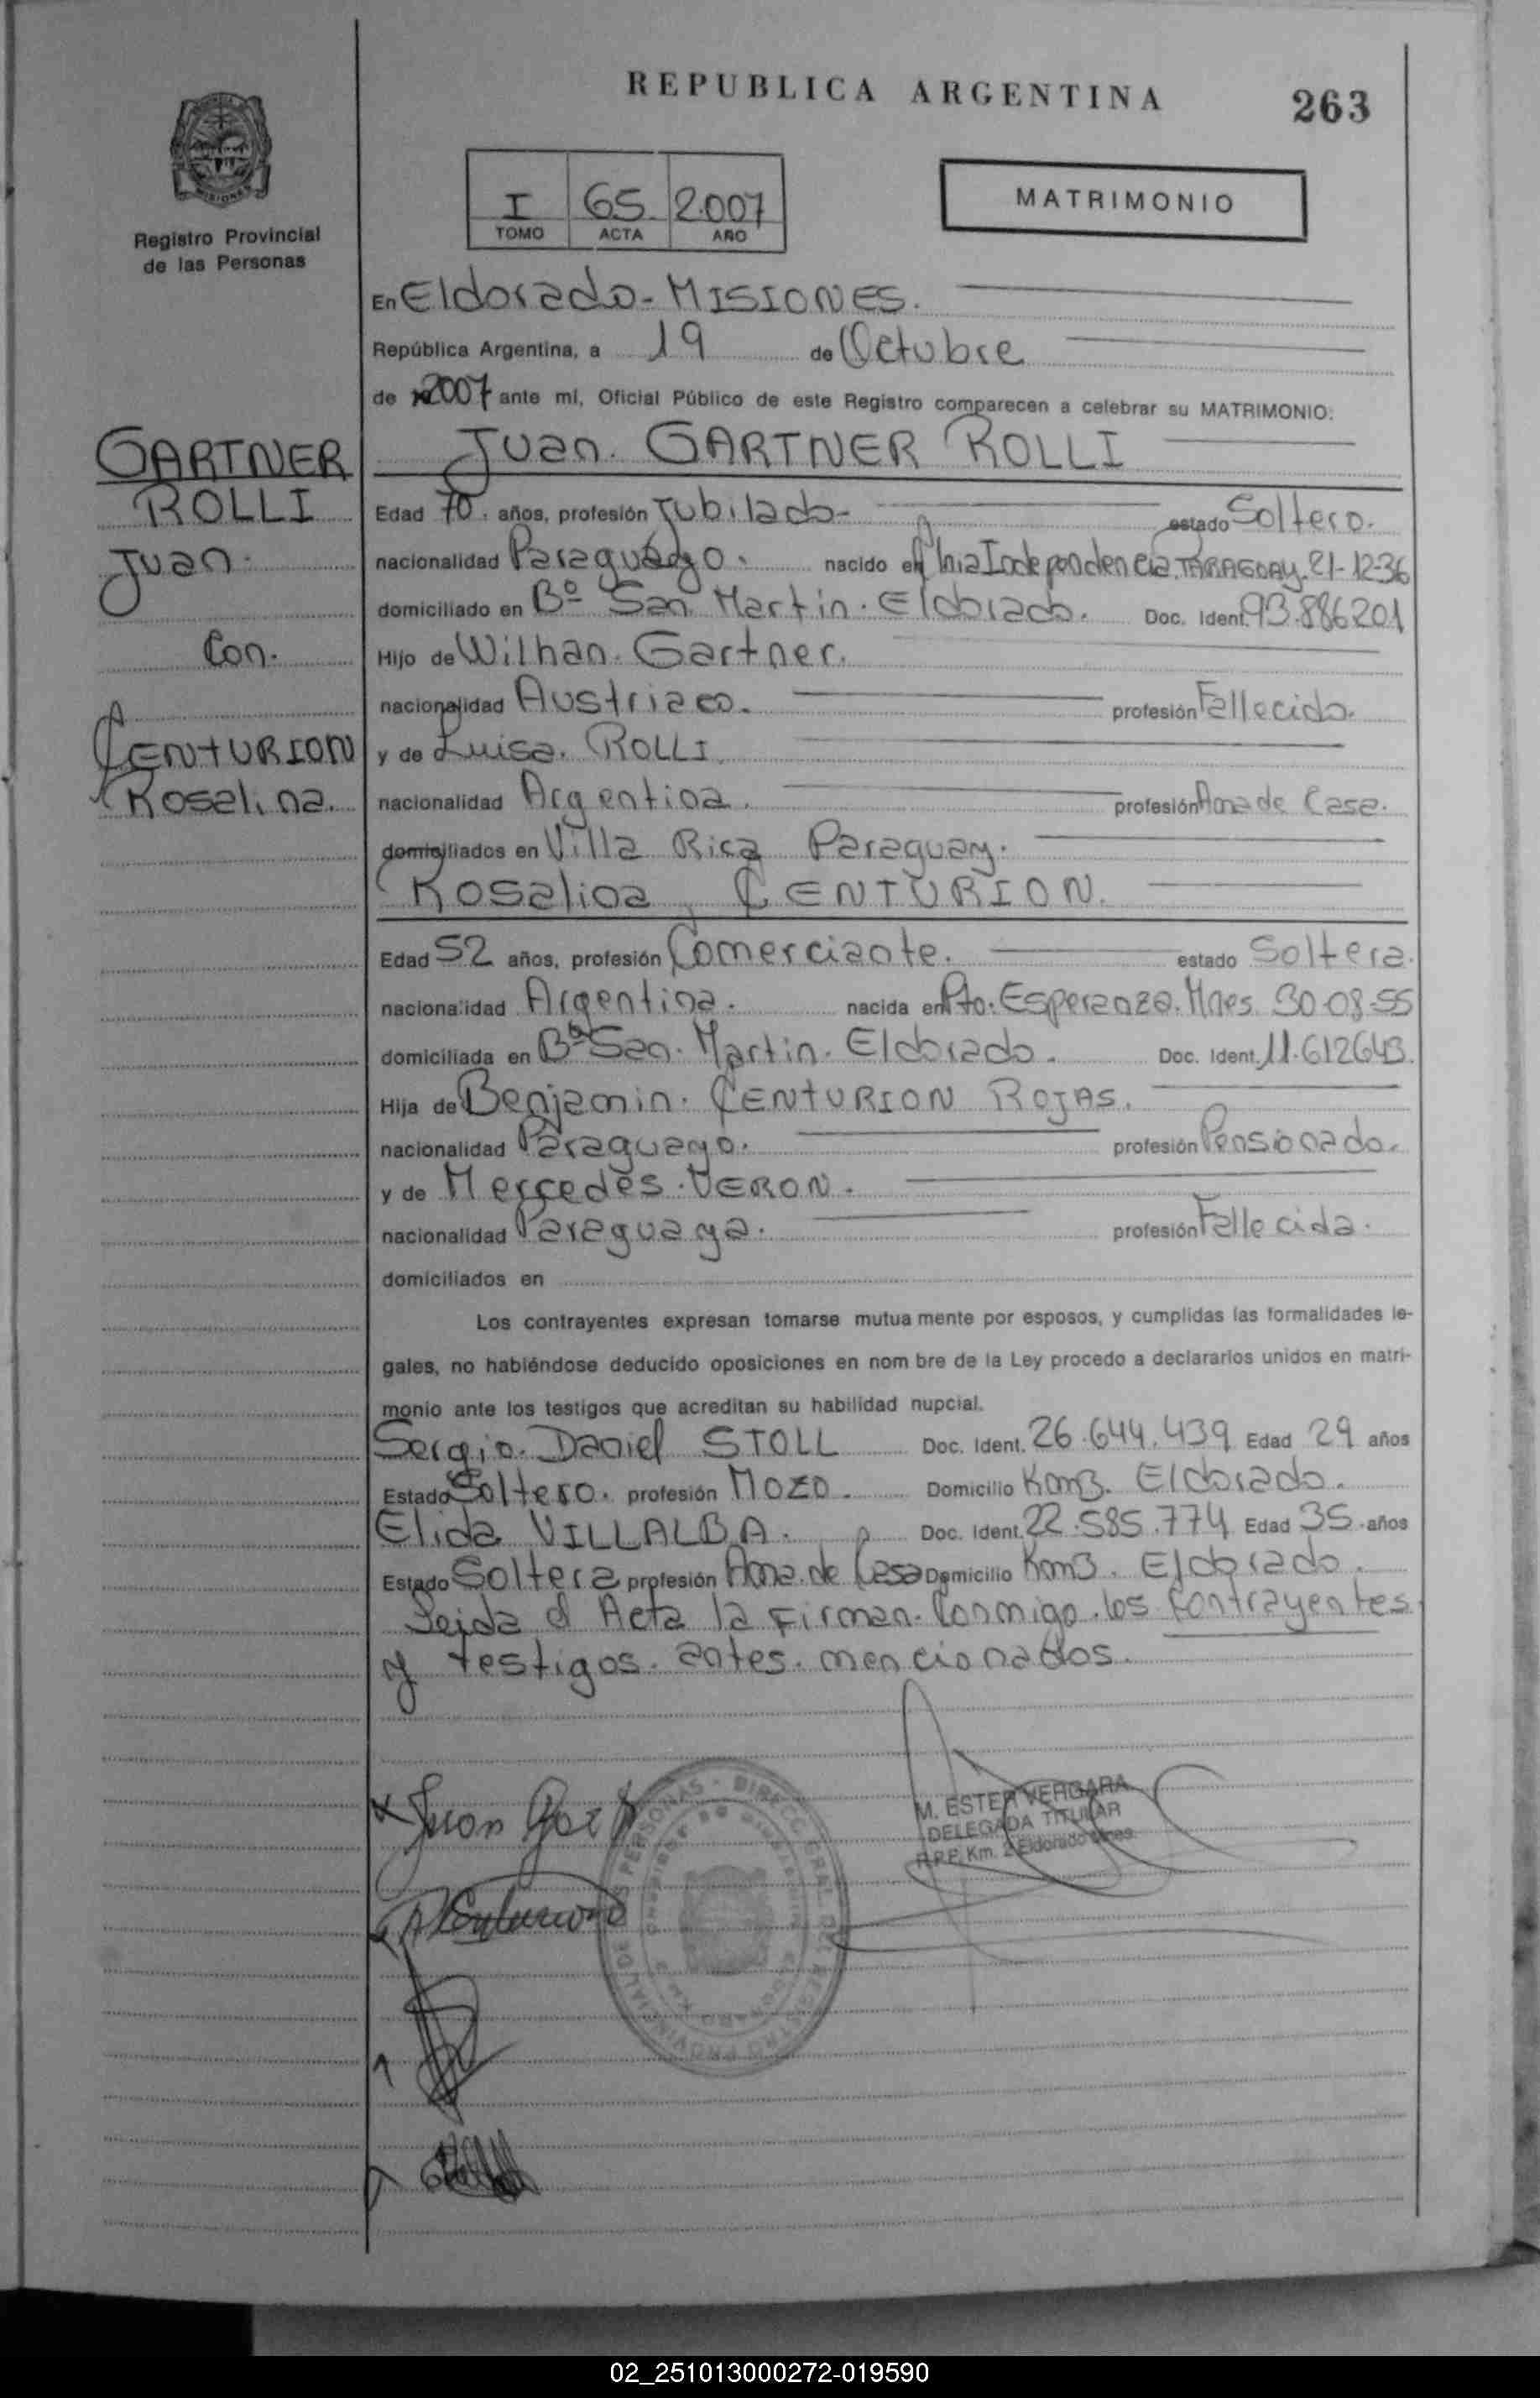 REPUBLICA ARGENTINA
263
MISIONES
Registro Provincial
de las Personas
I 65 2.007
TOMO ACTA AÑO
MATRIMONIO
En Eldorado - MISIONES.
República Argentina, a 19 de Octubre
de 2007 ante mí, Oficial Público de este Registro comparecen a celebrar su MATRIMONIO:
GARTNER
ROLLI
Juan.
Con.
CENTURION
Rosalina.
Juan. GARTNER ROLLI
Edad 70. años, profesión Jubilado- estado Soltero.
nacionalidad Paraguayo. nacido en Cnia Independencia. PARAGUAY. 21-12-36
domiciliado en Bº San Martin. Eldorado. Doc. Ident. 93.886201
Hijo de Wilhan. Gartner.
nacionalidad Austriaco. profesión Fallecido.
y de Luisa. ROLLI.
nacionalidad Argentina. profesión Ama de Casa.
domiciliados en Villa Rica Paraguay.
Rosalina CENTURION.
Edad 52 años, profesión Comerciante. estado Soltera.
nacionalidad Argentina. nacida en Pto. Esperanza. Mnes. 30-08-55
domiciliada en Bº San. Martin. Eldorado. Doc. Ident. 11.612643.
Hija de Benjamin. CENTURION ROJAS.
nacionalidad Paraguayo. profesión Pensionado.
y de Mercedes. VERON.
nacionalidad Paraguaya. profesión Fallecida.
domiciliados en
Los contrayentes expresan tomarse mutua mente por esposos, y cumplidas las formalidades le-
gales, no habiéndose deducido oposiciones en nom bre de la Ley procedo a declararlos unidos en matri-
monio ante los testigos que acreditan su habilidad nupcial.
Sergio. Daniel STOLL Doc. Ident. 26.644.439 Edad 29 años
Estado Soltero. profesión MOZO. Domicilio Km3. Eldorado.
Elida VILLALBA. Doc. Ident. 22.585.774 Edad 35 años
Estado Soltera profesión Ama. de Casa Domicilio Km3. Eldorado.
Leida el Acta la Firman. Conmigo. los Contrayentes
y testigos. antes. mencionados.
Juan
M. ESTER VERGARA
DELEGADA TITULAR
R.P.P. Km. 2 Eldorado Mnes.
02_251013000272-019590